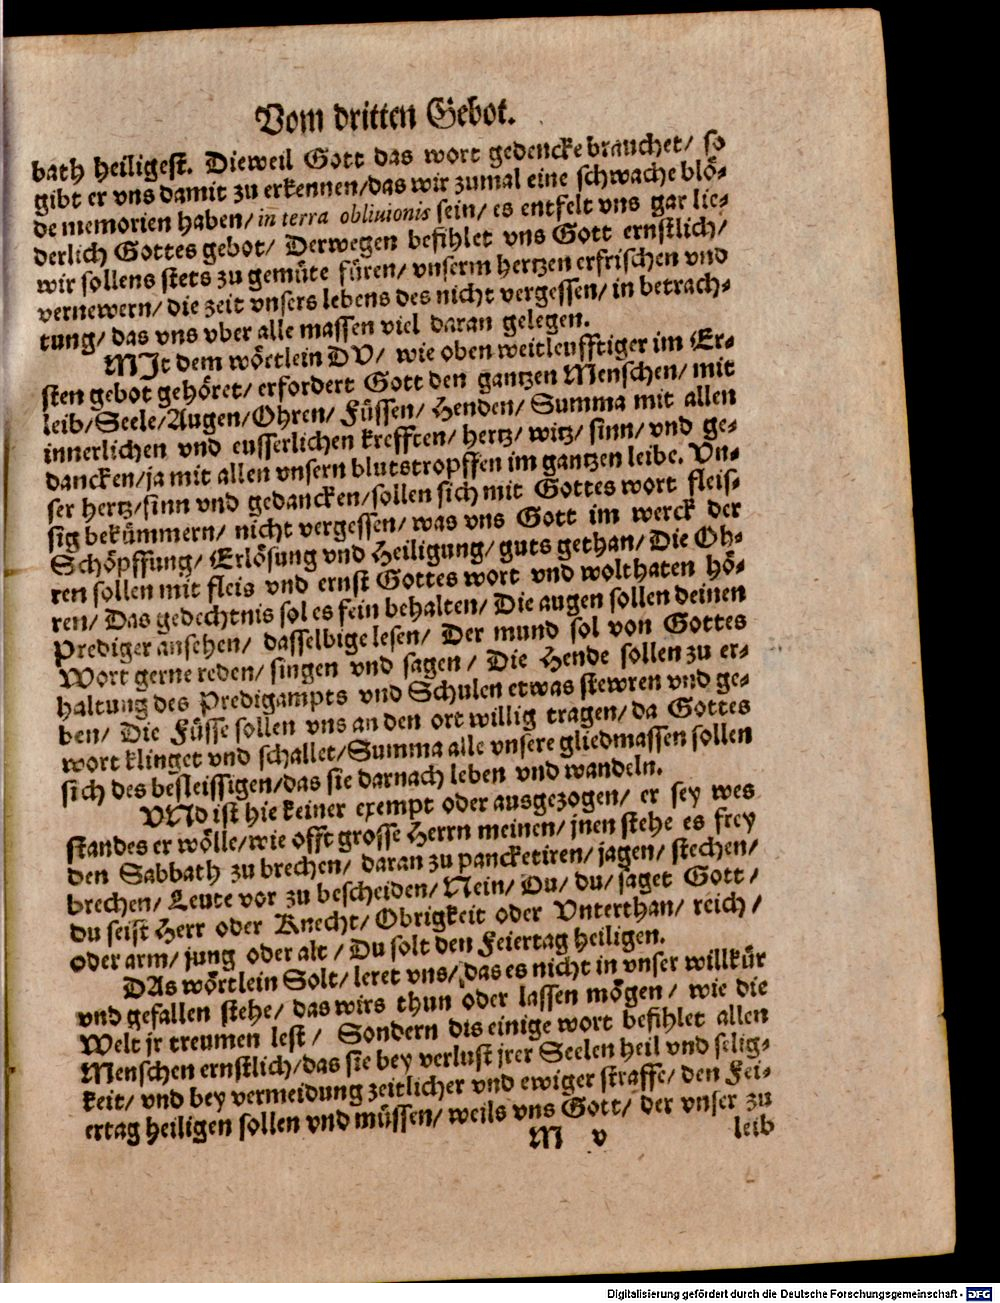 Vom dritten Gebot.
bath heiligest. Dieweil Gott das wort gedencke brauchet/ so
gibt er vns damit zu erkennen/das wir zumal eine schwache blö-
de memorien haben/ in terra obliuionis sein/ es entfelt vns gar lie-
derlich Gottes gebot/ Derwegen befihlet vns Gott ernstlich/
wir sollens stets zu gemüte füren/ vnserm hertzen erfrischen vnd
vernewern/ die zeit vnsers lebens des nicht vergessen/ in betrach-
tung/ das vns vber alle massen viel daran gelegen.
MIt dem wörtlein DV/ wie oben weitleufftiger im Er-
sten gebot gehöret/ erfordert Gott den gantzen Menschen/ mit
leib/Seele/Augen/Ohren/ Füssen/ Henden/ Summa mit allen
innerlichen vnd eusserlichen krefften/ hertz/ witz/ sinn/ vnd ge-
dancken/ja mit allen vnsern blutstropffen im gantzen leibe. Vn-
ser hertz/sinn vnd gedancken/sollen sich mit Gottes wort fleis-
sig bekümmern/ nicht vergessen/ was vns Gott im werck der
Schöpffung/ Erlösung vnd Heiligung/ guts gethan/ Die Oh-
ren sollen mit fleis vnd ernst Gottes wort vnd wolthaten hö-
ren/ Das gedechtnis sol es fein behalten/ Die augen sollen deinen
Prediger ansehen/ dasselbige lesen/ Der mund sol von Gottes
Wort gerne reden/ singen vnd sagen/ Die Hende sollen zu er-
haltung des Predigampts vnd Schulen etwas stewren vnd ge-
ben/ Die Füsse sollen vns an den ort willig tragen/ da Gottes
wort klinget vnd schallet/Summa alle vnsere gliedmassen sollen
sich des befleissigen/das sie darnach leben vnd wandeln.
VNd ist hie keiner exempt oder ausgezogen/ er sey wes
standes er wölle/wie offt grosse Herrn meinen/ jnen stehe es frey
den Sabbath zu brechen/ daran zu pancketiren/ jagen/ stechen/
brechen/ Leute vor zu bescheiden/ Nein/ Du/ du/ saget Gott/
du seist Herr oder Knecht/ Obrigkeit oder Vnterthan/ reich/
oder arm/ jung oder alt/ Du solt den Feiertag heiligen.
DAs wörtlein Solt/ leret vns/ das es nicht in vnser willkür
vnd gefallen stehe/ das wirs thun oder lassen mögen/ wie die
Welt jr treumen lest/ Sondern dis einige wort befihlet allen
Menschen ernstlich/das sie bey verlust jrer Seelen heil vnd selig-
keit/ vnd bey vermeidung zeitlicher vnd ewiger straffe/ den Fei-
ertag heiligen sollen vnd müssen/ weils vns Gott/ der vnser zu
M v leib
Digitalisierung gefördert durch die Deutsche Forschungsgemeinschaft - DFG